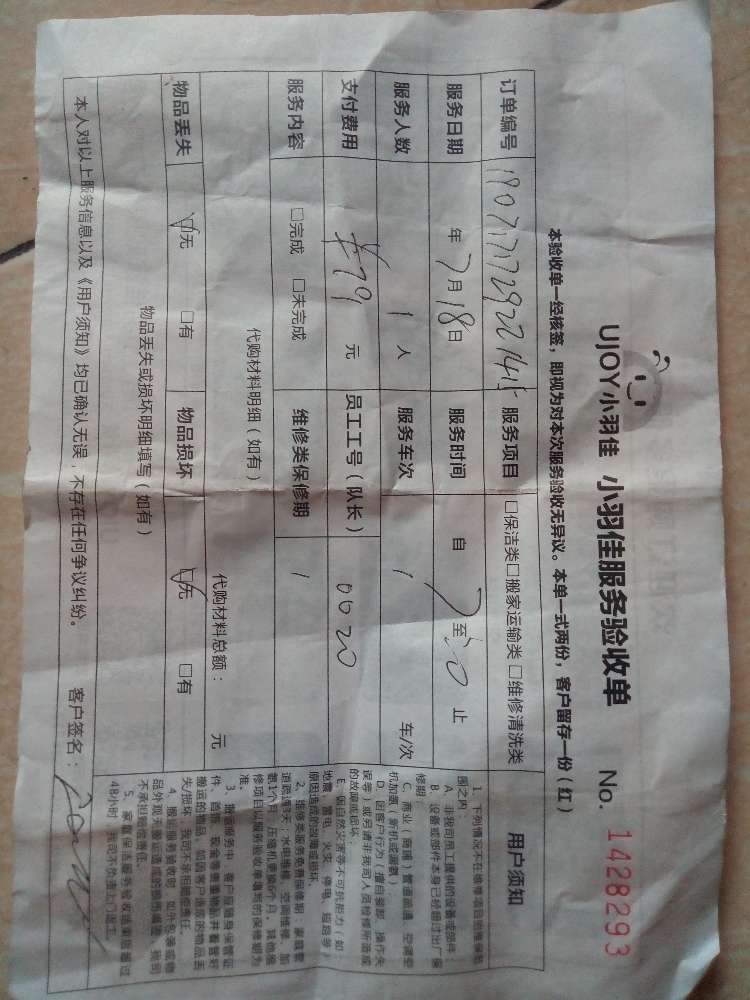 UJOY小羽佳 小羽佳服务验收单 No. 1428293
本验收单一经核签，即视为对本次服务验收无异议。本单一式两份，客户留存一份（红）
订单编号 服务项目 □保洁类□搬家运输类□维修清洗类
服务日期 年 7月18日 服务时间 自 7 至 止
服务人数 1 人 服务车次 / 车/次
支付费用 ¥79 元 员工工号（队长） 0020
服务内容 □完成 □未完成 维修类保修期 /
代购材料明细（如有） 代购材料总额： 元
物品丢失 ☑无 □有 物品损坏 ☑无 □有
物品丢失或损坏明细填写（如有）
本人对以上服务信息以及《用户须知》均已确认无误，不存在任何争议纠纷。 客户签名：
用户须知
1、下列情况不在维修项目包修
围之内：
A、非我司员工提供的设备或部件
B、设备或部件本身已经超过出厂保
修期
C、商业（商铺）管道疏通、空调空
机加氟（新机或漏氟）
D、因客户行为（擅自装卸、操作失
误等）或另请非我司人员检修所造成
的故障或损坏；
E、因自然灾害等不可抗拒力（如：
地震、雷电、火灾、停电、短路等）
原因造成的故障或损坏。
2、维修类服务免费保修期：家庭管
道疏通 天；水电维修、空调维修、加
氟1个月，压缩机更换6个月，其他维
修项目以服务验收单填写的保修期为
准。
3、搬运服务中，客户应随身保管证
件、首饰、现金等贵重物品并看管好
搬运的物品，如因客户造成的物品丢
失/损坏，我司不承担赔偿责任。
4、搬运服务验收时，如外包装或物
品外观无搬运造成的损伤痕迹，我司
不承担赔偿责任。
5、家庭保洁服务验收结束后超过
48小时，我司不负责上门返工